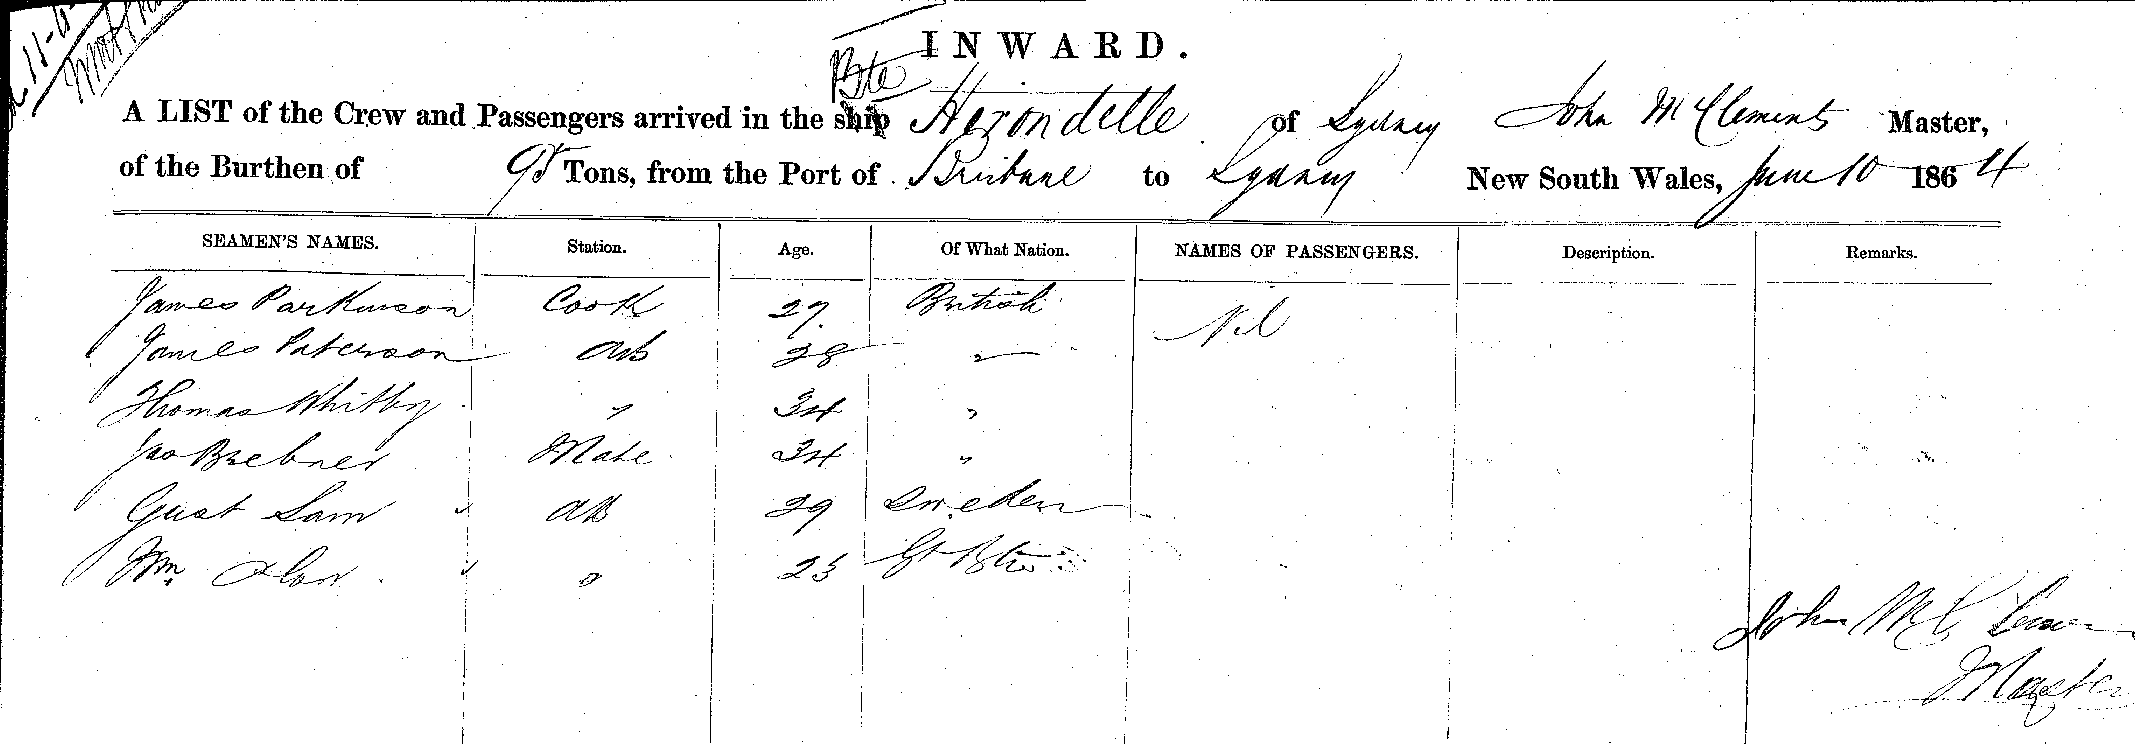 INWARD.
Bte
A LIST of the Crew and Passengers arrived in the ship Herondelle of Sydney John McClements Master,
of the Burthen of Tons, from the Port of Brisbane to Sydney New South Wales, June 10 1864
SEAMEN'S NAMES. Station. Age. Of What Nation. NAMES OF PASSENGERS. Description. Remarks.
James Parkinson Cook 27 British Nil
James Paterson AB 28 "
Thomas Whitby " 34 "
Jno Brebner Mate 34 "
Gust Sam AB 29 Sweden
Wm. " 25 Gt
John
Master